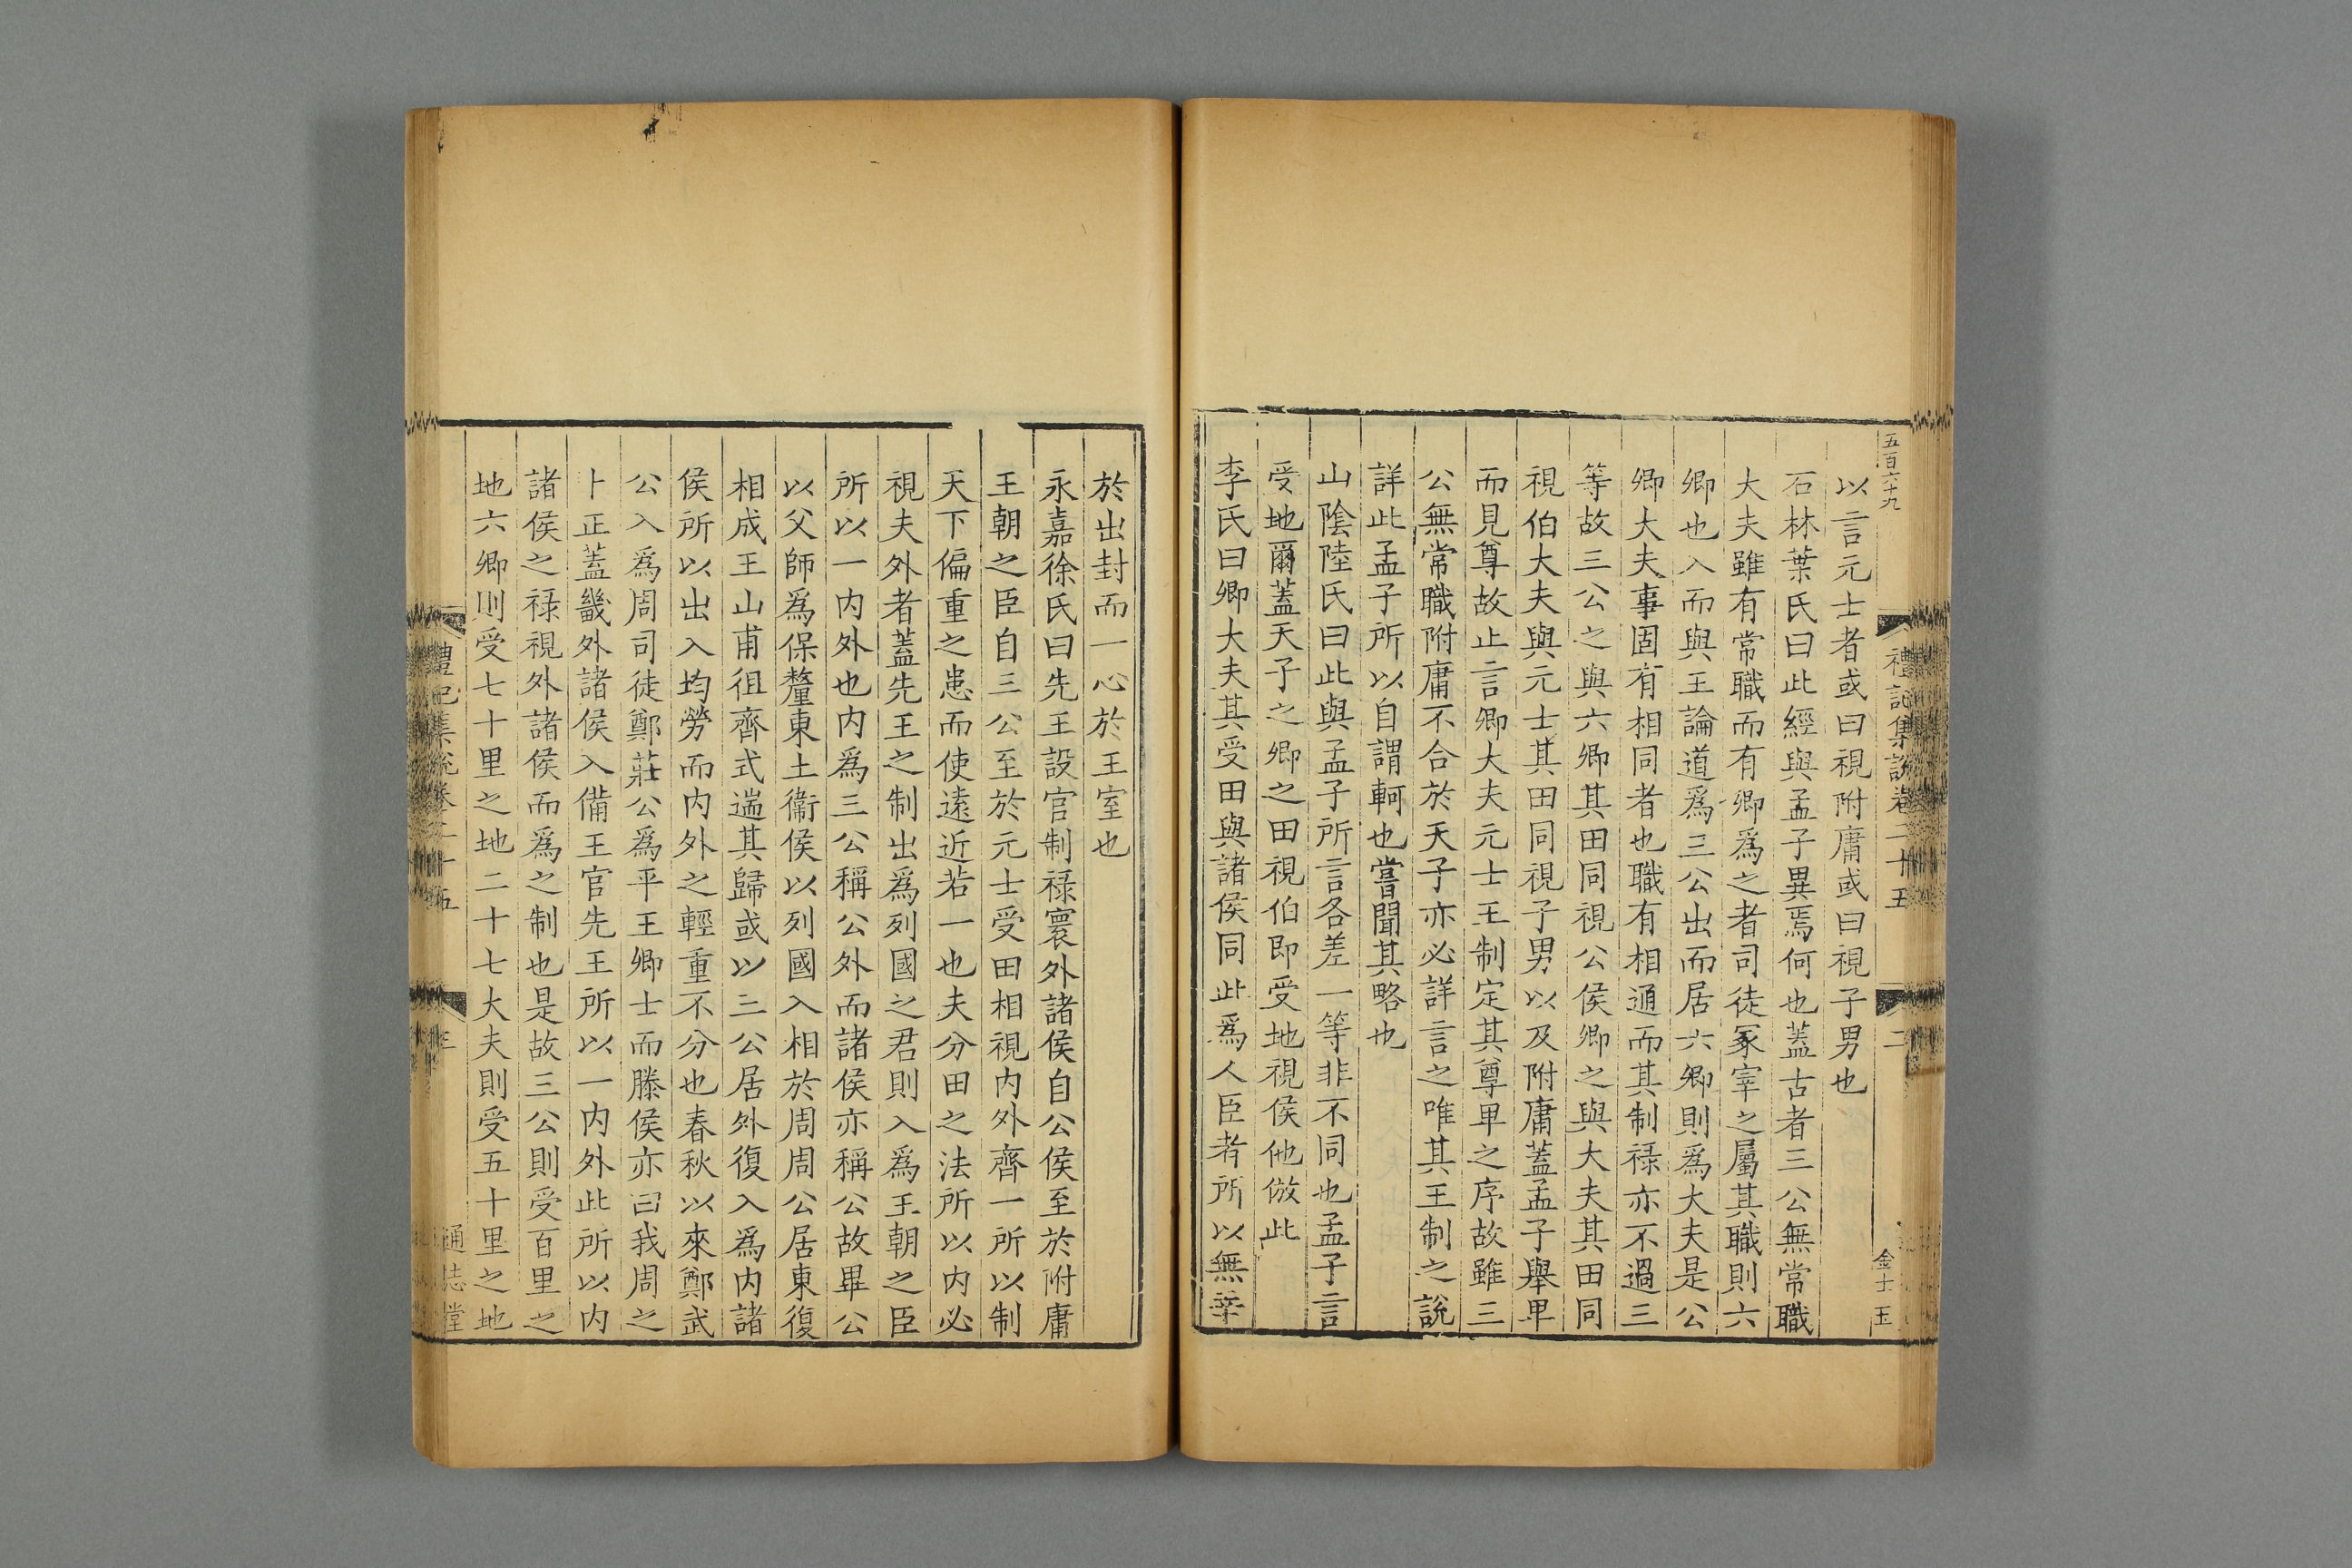 五百六十九
禮記集說卷二十五
二
金士玉
以言元士者或曰視附庸或曰視子男也
石林葉氏曰此經與孟子異焉何也蓋古者三公無常職
大夫雖有常職而有卿爲之者司徒冢宰之屬其職則六
卿也入而與王論道爲三公出而居六卿則爲大夫是公
卿大夫事固有相同者也職有相通而其制禄亦不過三
等故三公之與六卿其田同視公侯卿之與大夫其田同
視伯大夫與元士其田同視子男以及附庸蓋孟子舉畢
而見尊故止言卿大夫元士王制定其尊卑之序故雖三
公無常職附庸不合於天子亦必詳言之唯其王制之說
詳此孟子所以自謂軻也嘗聞其略也
山隂陸氏曰此與孟子所言各差一等非不同也孟子言
受地爾蓋天子之卿之田視伯即受地視侯他倣此
李氏曰卿大夫其受田與諸侯同此爲人臣者所以無幸
於出封而一心於王室也
永嘉徐氏曰先王設官制禄寰外諸侯自公侯至於附庸
王朝之臣自三公至於元士受田相視内外齊一所以制
天下偏重之患而使遠近若一也夫分田之法所以内必
視夫外者蓋先王之制出爲列國之君則入爲王朝之臣
所以一内外也内爲三公稱公外而諸侯亦稱公故畢公
以父師爲保釐東土衞侯以列國入相於周周公居東復
相成王山甫徂齊式遄其歸或以三公居外復入爲内諸
侯所以出入均勞而内外之輕重不分也春秋以來鄭武
公入爲周司徒鄭莊公爲平王卿士而滕侯亦曰我周之
卜正蓋畿外諸侯入備王官先王所以一内外此所以内
諸侯之禄視外諸侯而爲之制也是故三公則受百里之
地六卿則受七十里之地二十七大夫則受五十里之地
禮記集說卷二十五
三
通志堂